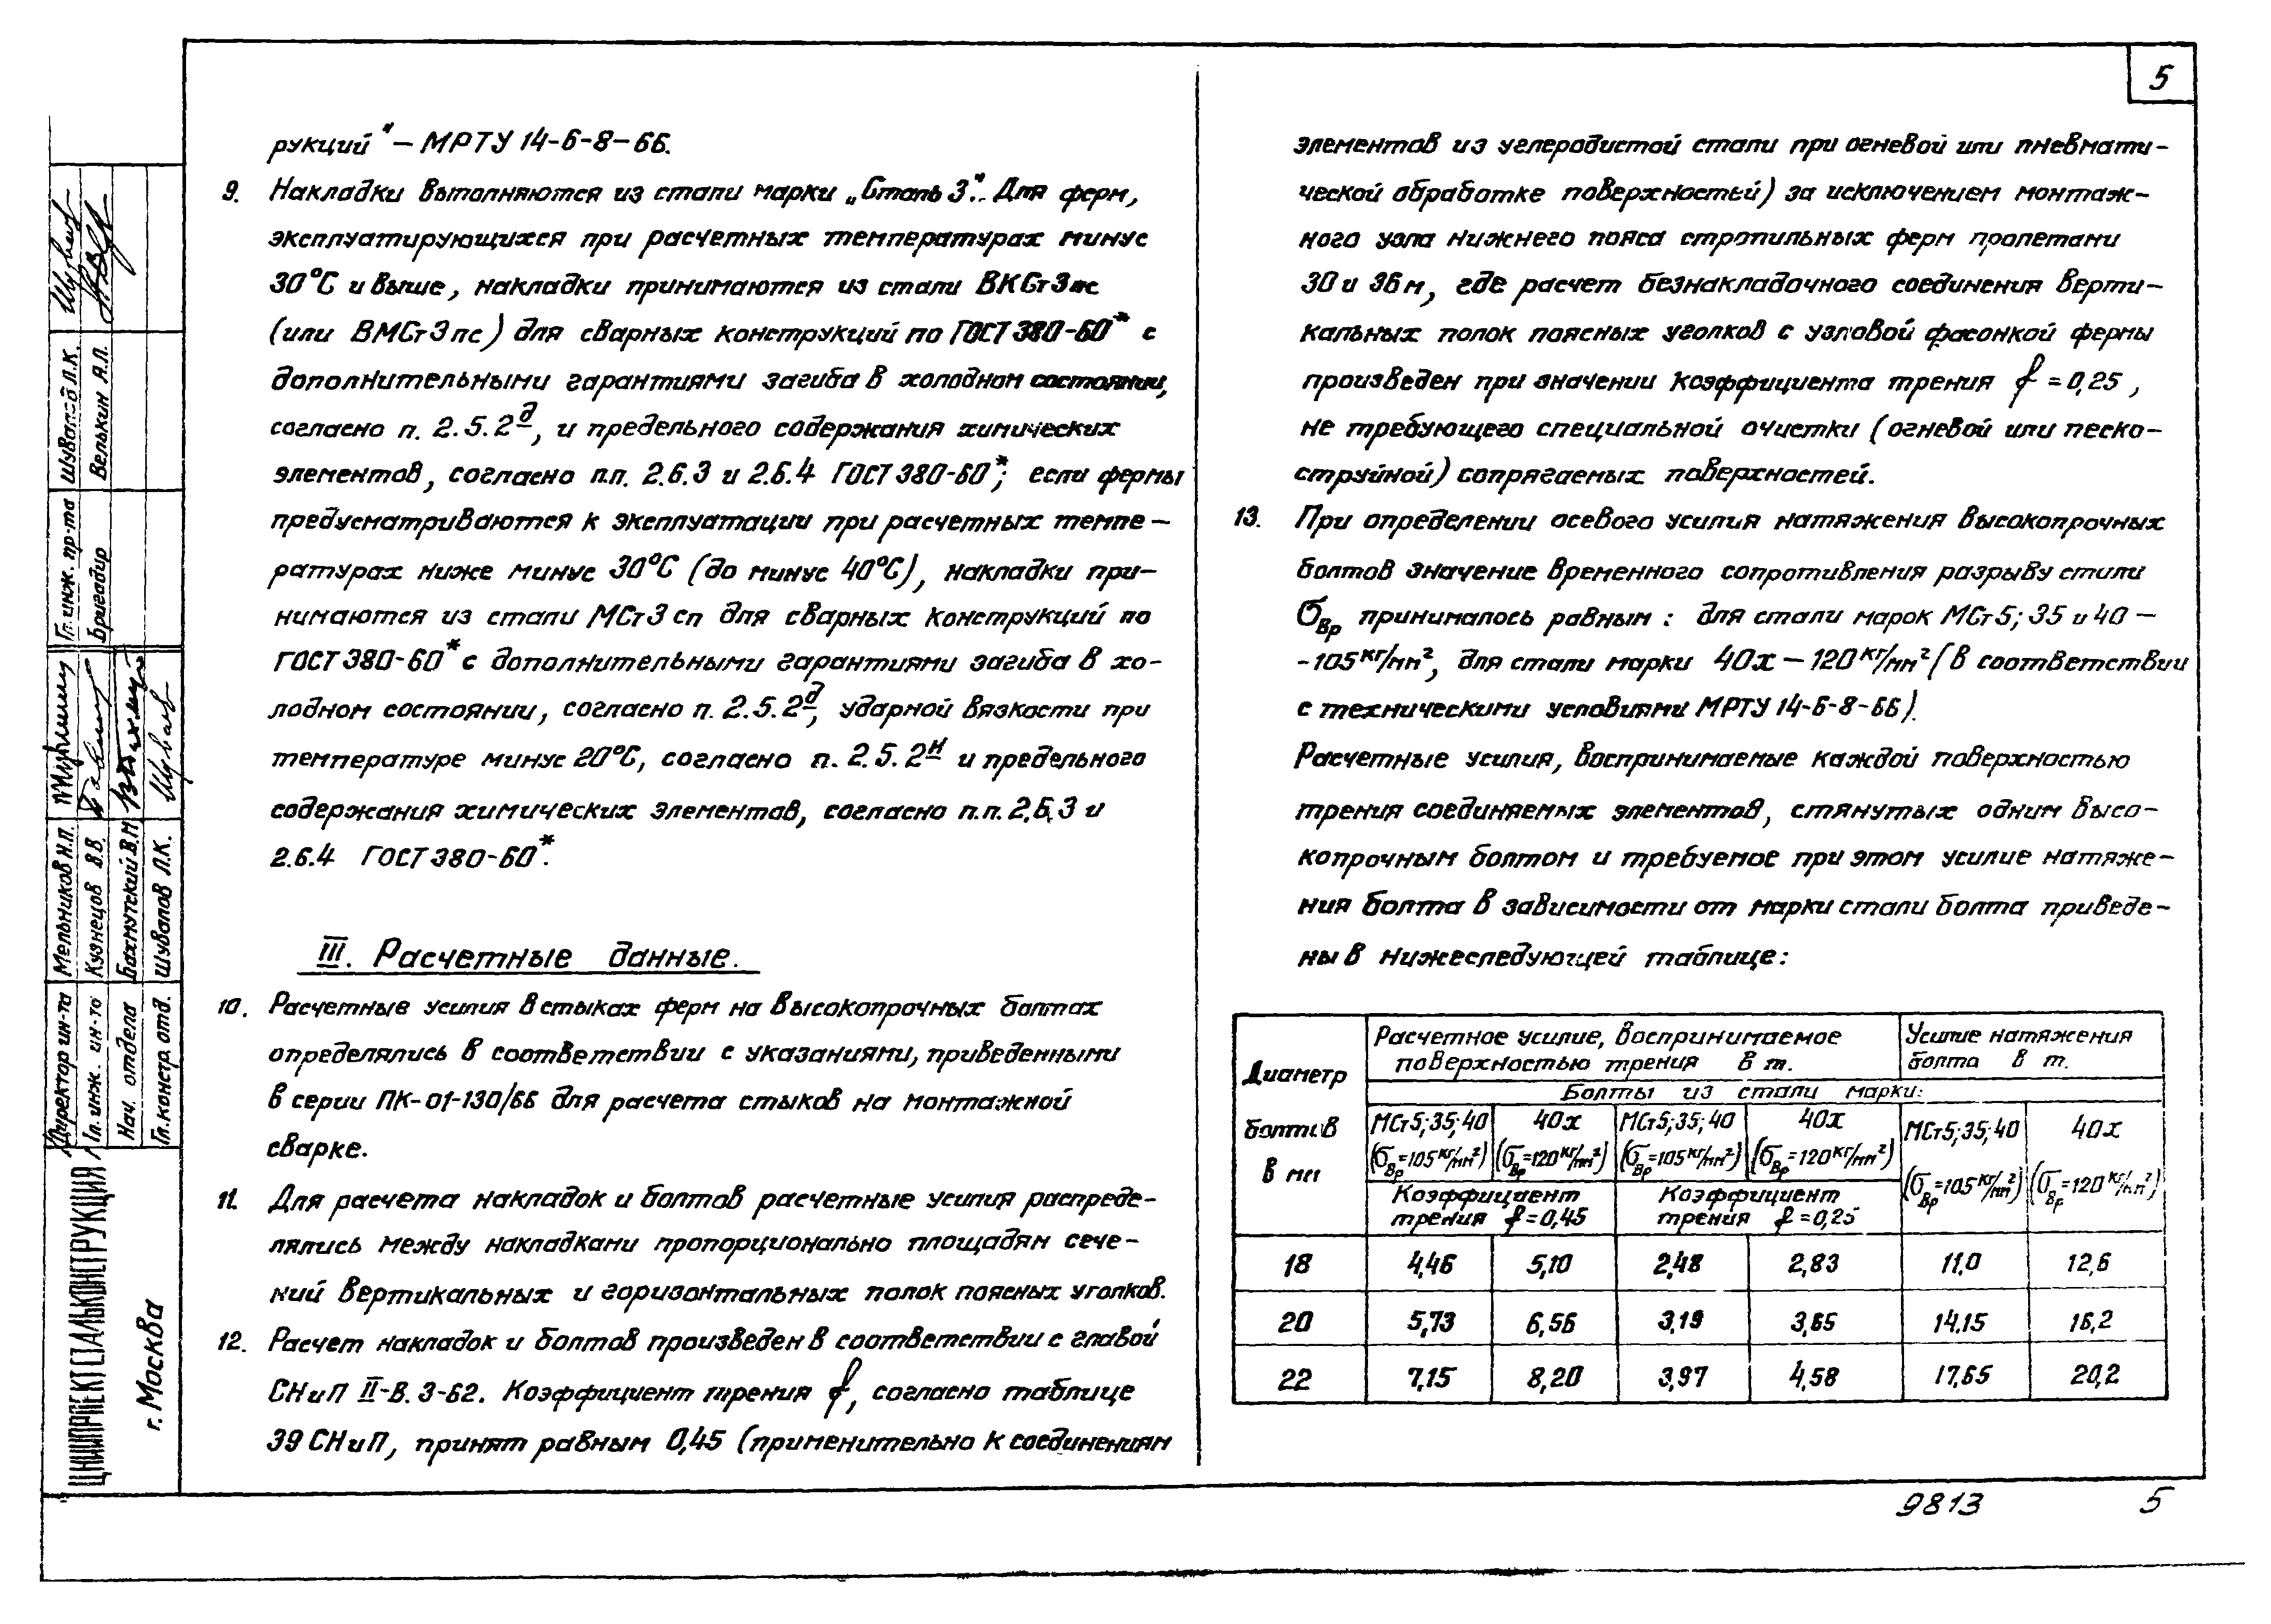 5
рукций" – МРТУ 14-6-8-66.
9. Накладки выполняются из стали марки „Сталь 3". Для ферм,
эксплуатирующихся при расчетных температурах минус
30°С и выше, накладки принимаются из стали ВКСт3пс
(или ВМСт3пс) для сварных конструкций по ГОСТ 380-60* с
дополнительными гарантиями загиба в холодном состоянии,
согласно п. 2.5.2д, и предельного содержания химических
элементов, согласно п.п. 2.6.3 и 2.6.4 ГОСТ 380-60*; если фермы
предусматриваются к эксплуатации при расчетных темпе–
ратурах ниже минус 30°С (до минус 40°С), накладки при–
нимаются из стали МСт3сп для сварных конструкций по
ГОСТ 380-60* с дополнительными гарантиями загиба в хо-
лодном состоянии, согласно п. 2.5.2д, ударной вязкости при
температуре минус 20°С, согласно п. 2.5.2н и предельного
содержания химических элементов, согласно п.п. 2.6.3 и
2.6.4 ГОСТ 380-60*.
III. Расчетные данные.
10. Расчетные усилия в стыках ферм на высокопрочных болтах
определялись в соответствии с указаниями, приведенными
в серии ПК-01-130/66 для расчета стыков на монтажной
сварке.
11. Для расчета накладок и болтов расчетные усилия распреде–
лялись между накладками пропорционально площадям сече–
ний вертикальных и горизонтальных полок поясных уголков.
12. Расчет накладок и болтов произведен в соответствии с главой
СНиП II-В. 3-62. Коэффициент трения f, согласно таблице
39 СНиП, принят равным 0,45 (применительно к соединениям
элементов из углеродистой стали при огневой или пневмати–
ческой обработке поверхностей) за исключением монтаж–
ного узла нижнего пояса стропильных ферм пролетами
30 и 36 м, где расчет безнакладочного соединения верти–
кальных полок поясных уголков с узловой фасонкой фермы
произведен при значении коэффициента трения f = 0,25,
не требующего специальной очистки (огневой или песко–
струйной) сопрягаемых поверхностей.
13. При определении осевого усилия натяжения высокопрочных
болтов значение временного сопротивления разрыву стали
σвр принималось равным: для стали марок МСт5; 35 и 40 –
-105 кг/мм², для стали марки 40х – 120 кг/мм² (в соответствии
с техническими условиями МРТУ 14-6-8-66).
Расчетные усилия, воспринимаемые каждой поверхностью
трения соединяемых элементов, стянутых одним высо–
копрочным болтом и требуемое при этом усилие натяже–
ния болта в зависимости от марки стали болта приведе–
ны в нижеследующей таблице:
Диаметр болтов в мм
Расчетное усилие, воспринимаемое поверхностью трения в т.
Усилие натяжения болта в т.
Болты из стали марки:
МСт5;35;40 (σвр=105 кг/мм²)
40х (σвр=120 кг/мм²)
МСт5;35;40 (σвр=105 кг/мм²)
40х (σвр=120 кг/мм²)
МСт5;35;40 (σвр=105 кг/мм²)
40х (σвр=120 кг/мм²)
Коэффициент трения f=0,45
Коэффициент трения f=0,25
18 4,46 5,10 2,48 2,83 11,0 12,6
20 5,73 6,56 3,19 3,65 14,15 16,2
22 7,15 8,20 3,97 4,58 17,65 20,2
Гл. инж. пр-та Шувалов Л.К.
Бригадир Велькин А.Л.
Директор ин-та Мельников Н.П.
Гл. инж. ин-та Кузнецов В.В.
Нач. отдела Бахмутский В.М.
Гл. констр. отд. Шувалов Л.К.
ЦНИИПРОЕКТСТАЛЬКОНСТРУКЦИЯ
г. Москва
9813 5